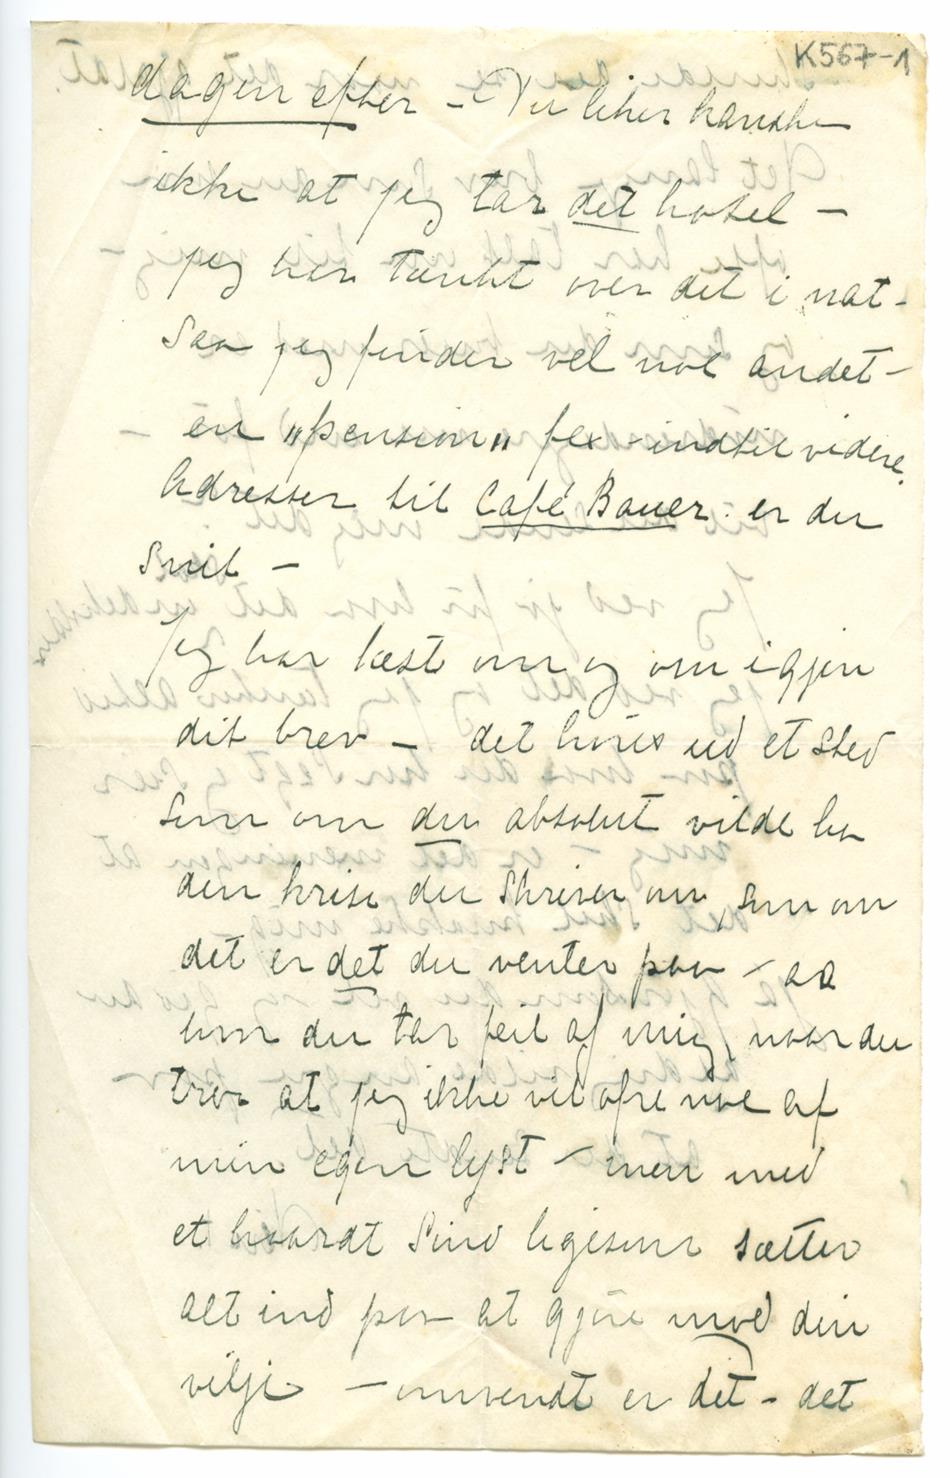 K567-1
dagen efter – Du liker kanske
ikke at jeg tar det hotel –
jeg har tænkt over det i nat –
saa jeg finder vel noe andet –
en „pension„ fex – indtil videre.
Adresser til Café Bauer er du
snil –
Jeg har læst om og om igjen
dit brev – det høres ud et sted
som om du absolut vilde ha
den krise du skriver om, som om
det er det du venter paa – aa
hvor du tar feil af mig, naar du
tror at jeg ikke vil ofre noe af
min egen lyst – men med
et haardt Sind ligesom sætter
alt ind paa at gjøre mod din
vilje – omvendt er det – det